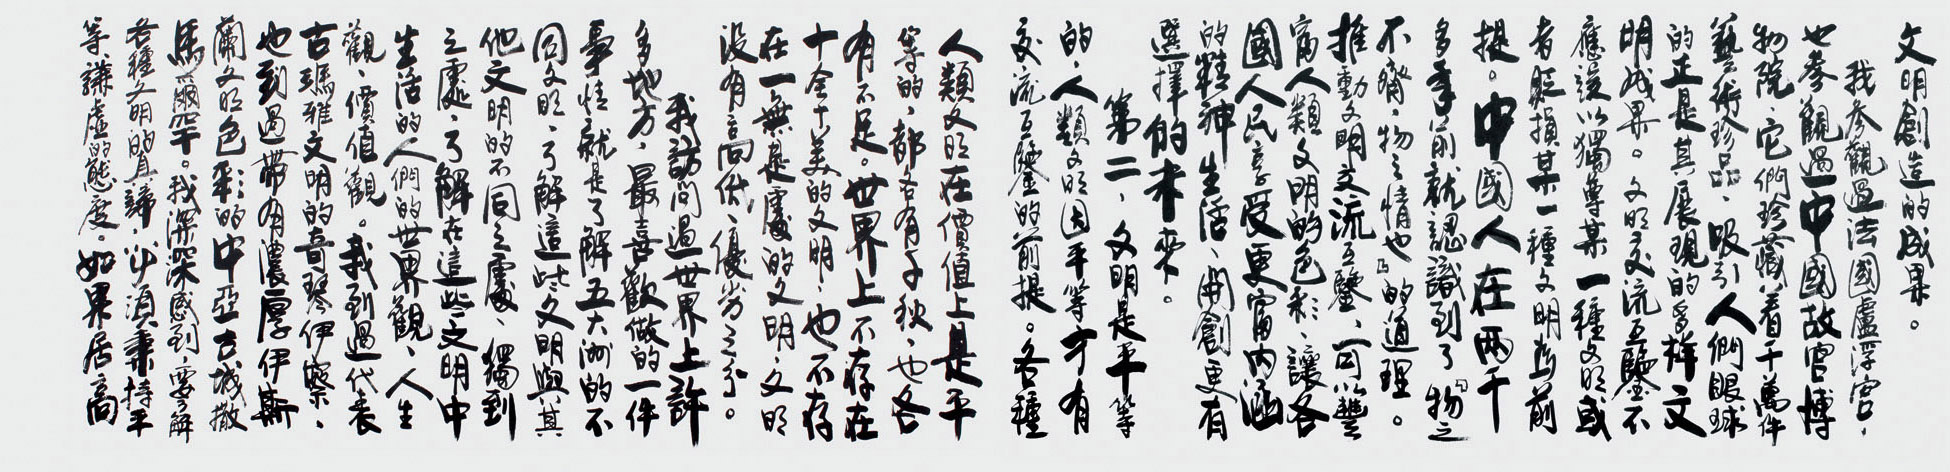 文明創造的成果。
我參觀過法國盧浮宮，
也參觀過中國故宮博
物院，它們珍藏着千萬件
藝術珍品，吸引人們眼球
的正是其展現的多樣文
明成果。文明交流互鑒不
應該以獨尊某一種文明或
者貶損某一種文明為前
提。中國人在兩千
多年前就認識到了「物之
不齊，物之情也」的道理。
推動文明交流互鑒，可以豐
富人類文明的色彩，讓各
國人民享受更富內涵
的精神生活、開創更有
選擇的未來。
第二，文明是平等
的，人類文明因平等才有
交流互鑒的前提。各種
人類文明在價值上是平
等的，都各有千秋，也各
有不足。世界上不存在
十全十美的文明，也不存
在一無是處的文明，文明
沒有高低、優劣之分。
我訪問過世界上許
多地方，最喜歡做的一件
事情就是了解五大洲的不
同文明，了解這些文明與其
他文明的不同之處、獨到
之處，了解在這些文明中
生活的人們的世界觀、人生
觀、價值觀。我到過代表
古瑪雅文明的奇琴伊察，
也到過帶有濃厚伊斯
蘭文明色彩的中亞古城撒
馬爾罕。我深深感到，要了解
各種文明的真諦，必須秉持平
等、謙虛的態度。如果居高